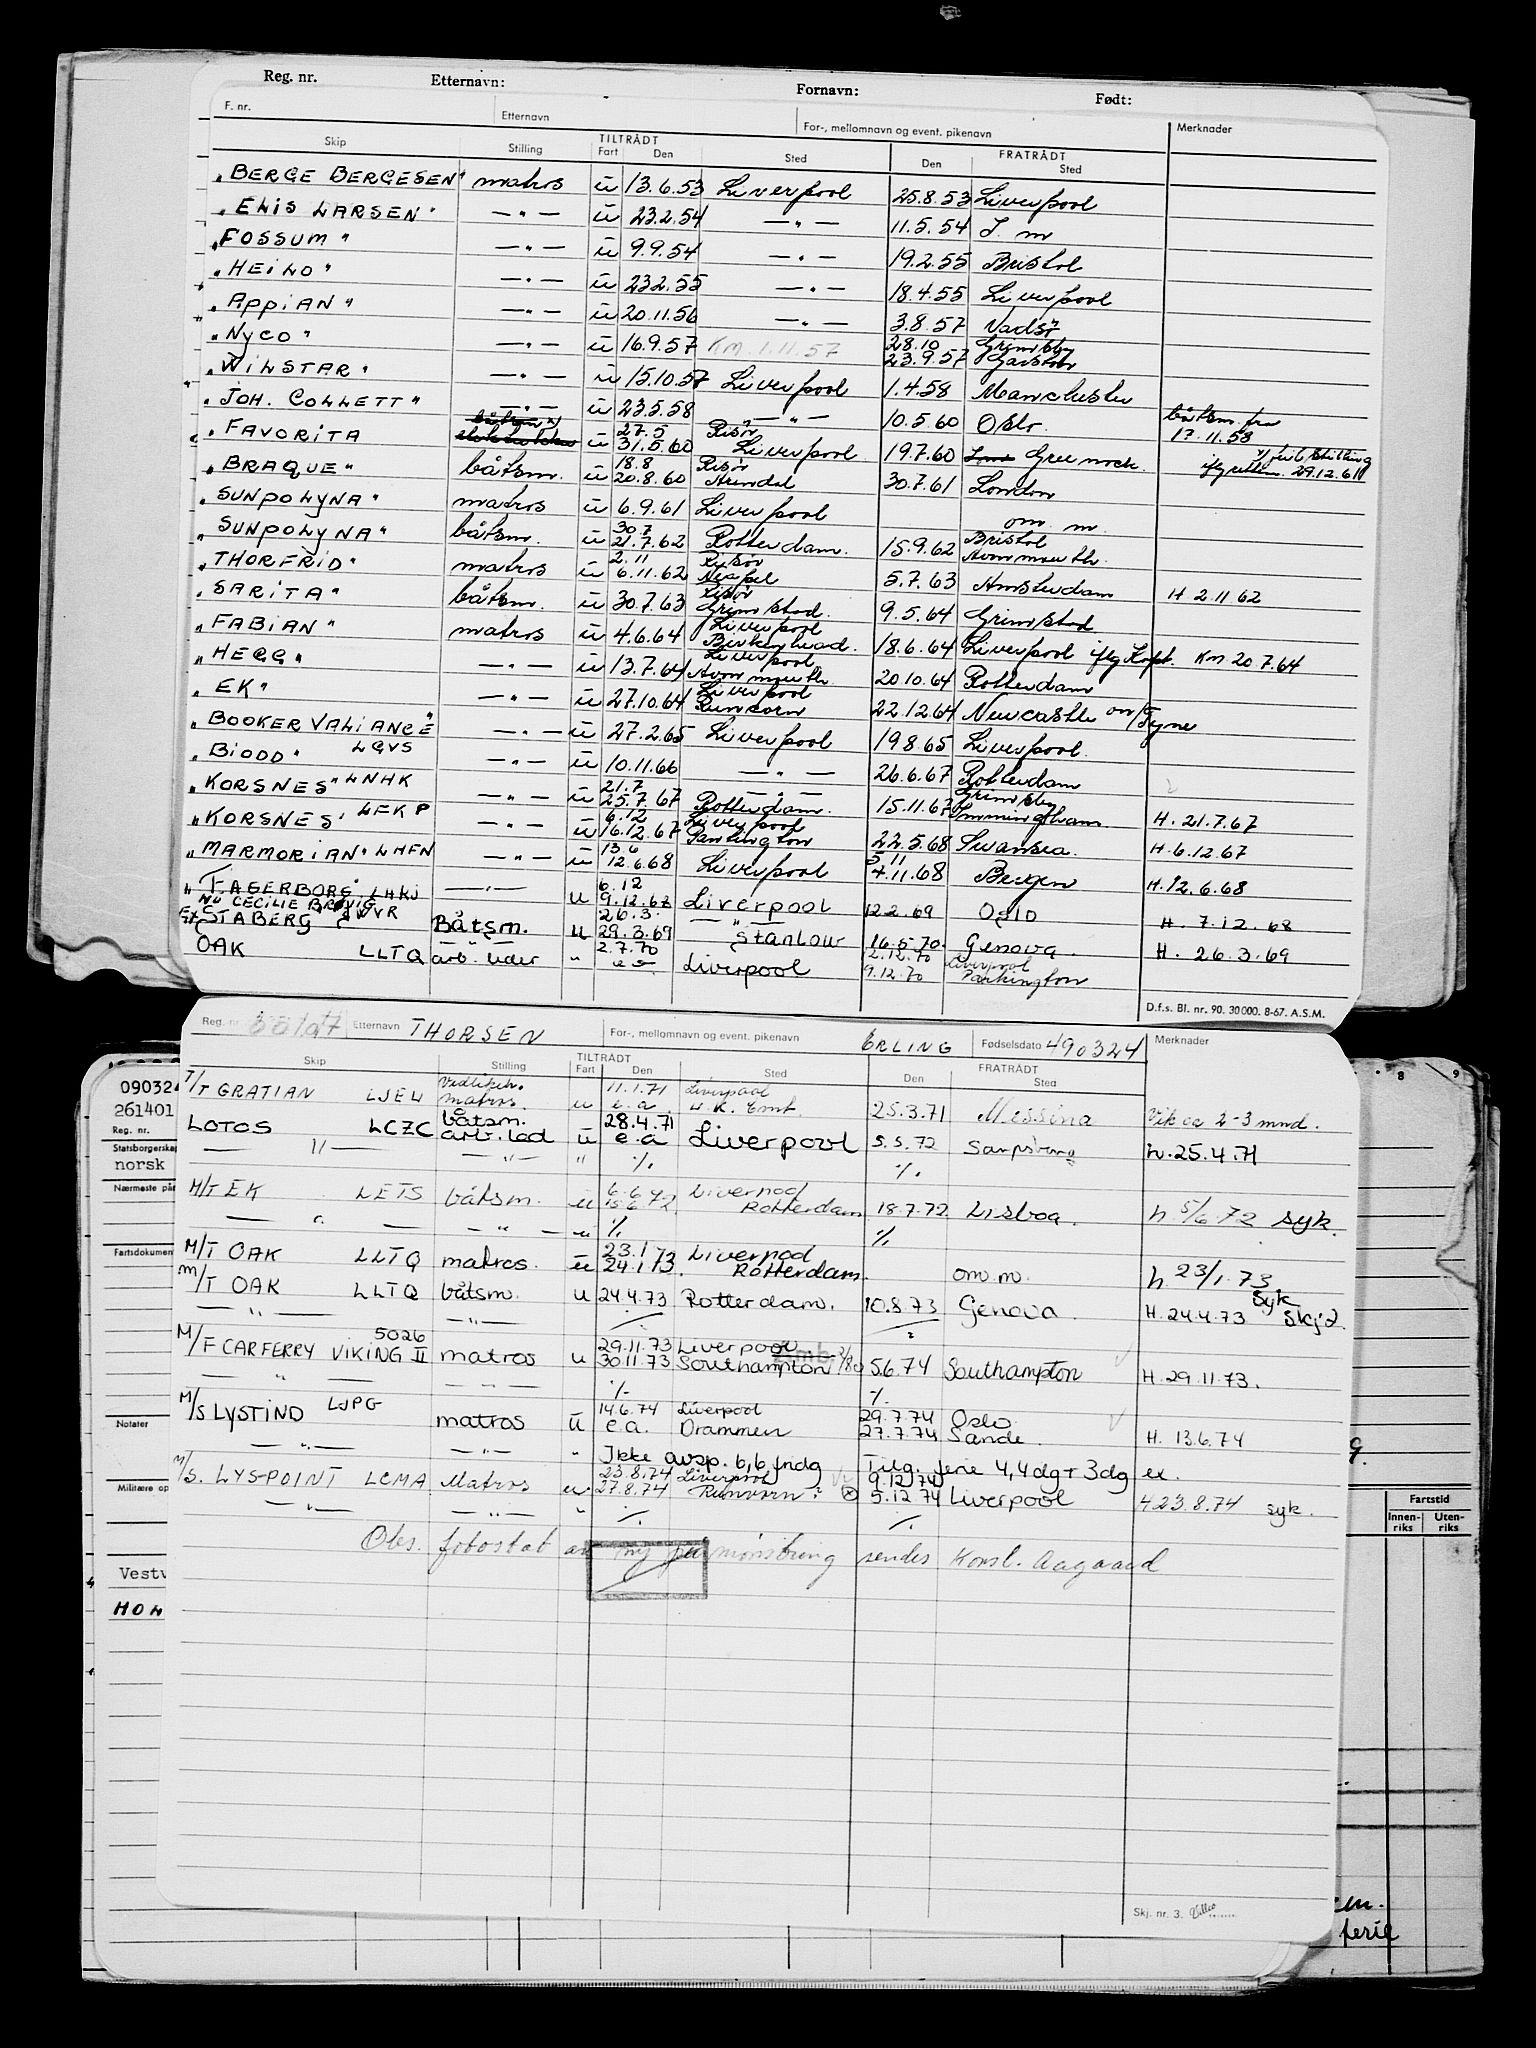 Reg. nr. Etternavn: Fornavn: Født:
F. nr. Etternavn For-, mellomnavn og event. pikenavn Merknader
Skip Stilling TILTRÅDT Fart Den Sted FRATRÅDT Den Sted
"BERGE BERGESEN" matros u 13.6.53 Liverpool 25.8.53 Liverpool
"ELIS LARSEN" — " — u 23.2.54 — " — 11.5.54 I. m
"FOSSUM" — " — u 9.9.54 — " — 19.2.55 Bristol
"HEILO" — " — u 23.2.55 — " — 18.4.55 Liverpool
"APPIAN" — " — u 20.11.56 — " — 3.8.57 Vadsø
"NYCO" — " — u 16.9.57 KM 1.11.57 28.10 Grimsby
23.9.57 Garston
"WILSTAR" — " — u 15.10.57 Liverpool 1.4.58 Manchester
"JOH. COLLETT" — " — u 23.5.58 — " — 10.5.60 Oslo. båtsm fra 17.11.58
"FAVORITA u 27.5 Risør
31.5.60 Liverpool 19.7.60 Greenock. iflg rullen. 29.12.61
"BRAQUE" båtsm. u 18.8 Risør
20.8.60 Arendal 30.7.61 London
"SUNPOLYNA" matros u 6.9.61 Liverpool om. m.
"SUNPOLYNA" båtsm. u 30.7
21.7.62 Rotterdam. 15.9.62 Bristol Avonmouth.
"THORFRID" matros u 2.11 Risør
6.11.62 Neapel 5.7.63 Amsterdam H 2.11 62
"SARITA" båtsm. u 30.7.63 Risør Grimstad. 9.5.64 Grimstad
"FABIAN" matros u 4.6.64 Liverpool Birkenhead. 18.6.64 Liverpool iflg Kapt. KM 20.7.64
"HEGG" — " — u 13.7.64 Liverpool Avonmouth 20.10.64 Rotterdam
"EK" — " — u 27.10.64 Liverpool Runcorn 22.12.64 Newcastle on/Tyne
"BOOKER VALIANCE" — " — u 27.2.65 Liverpool 19.8.65 Liverpool.
"BIODD" LGVS — " — u 10.11.66 — " — 26.6.67 Rotterdam
"KORSNES" LNHK — " — u 21.7 — " —
25.7.67 Rotterdam. 15.11.67 Grimsby Immingham H. 21.7.67
"KORSNES" LFKP — " — u 6.12 Liverpool
16.12.67 Partington 22.5.68 Swansea. H. 6.12.67
"MARMORIAN" LHFN — " — u 13.6
12.6.68 Liverpool 5.11
4.11.68 Bergen H. 12.6.68
"FAGERBORG" LHKJ — " — u 6.12
9.12.68 Liverpool 12.2.69 Oslo H. 7.12.68
NU CECILIE BRØVIG
Ex STABERG Båtsm. u 26.3.
29.3.69 — " — Stanlow 16.5.70 Genova. H. 26.3.69
OAK LLTQ arb. leder " 2.7.70
Liverpool 2.12.70 Liverpool
9.12.70 Partington
D.f.s. Bl. nr. 90. 30000. 8-67. A.S.M.
Reg. nr. Etternavn THORSEN For-, mellomnavn og event. pikenavn ERLING Fødselsdato 490324 Merknader
Skip Stilling TILTRÅDT Fart Den Sted FRATRÅDT Den Sted
T/T GRATIAN LJEW Vedlikeh. matros. u 11.1.71 Liverpool
e.a 25.3.71 Messina Vik ca 2-3 mnd.
LOTOS LCZC båtsm. arb. led u 28.4.71
e.a Liverpool 5.5.72 Sarpsborg h. 25.4.71
— " — — " — " ·/. ·/.
M/T EK LETS båtsm. u 6.6.72 Liverpool
15.6.72 Rotterdam 18.7.72 Lisboa. h 5/6.72 syk.
— " — — " — " ·/. ·/.
M/T OAK LLTQ matros. u 23.1 Liverpool
24.1.73. Rotterdam. om.m. h 23/1.73 Syk
M/T OAK LLTQ båtsm. u 24.4.73 Rotterdam. 10.8.73 Genova H. 24.4.73 Skj 2.
— " — — " — ·/. ·/.
M/F CARFERRY VIKING II 5026 matros u 29.11.73 Liverpool
30.11.73 Southampton 5.6.74 Southampton H. 29.11.73.
— " — — " — ·/. ·/.
M/S LYSTIND LJPG matros u 14.6.74 Liverpool
e.a. Drammen 29.7.74 Oslo
27.7.74 Sande. H. 13.6.74
— " — — " — " Ikke avsp. 6,6 fndg Tilg. ferie 4,4dg + 3dg ex.
M/S. LYS-POINT LCMA Matros u 23.8.74 Liverpool
27.8.74 Runcorn 9.12.74
5.12.74 Liverpool H 23.8.74 syk.
— " — — " — " ·/. ·/.
Obs. fotostat av ny påmønstring sendes Konsl. Aagaard
Skj. nr. 3.
090324
261401
Reg. nr.
Statsborgerskap
norsk
Nærmeste på
Fartsdokument
Notater
Militære op
Vestv
HOH
8 9
Fartstid
Innen-riks Uten-riks
ferie